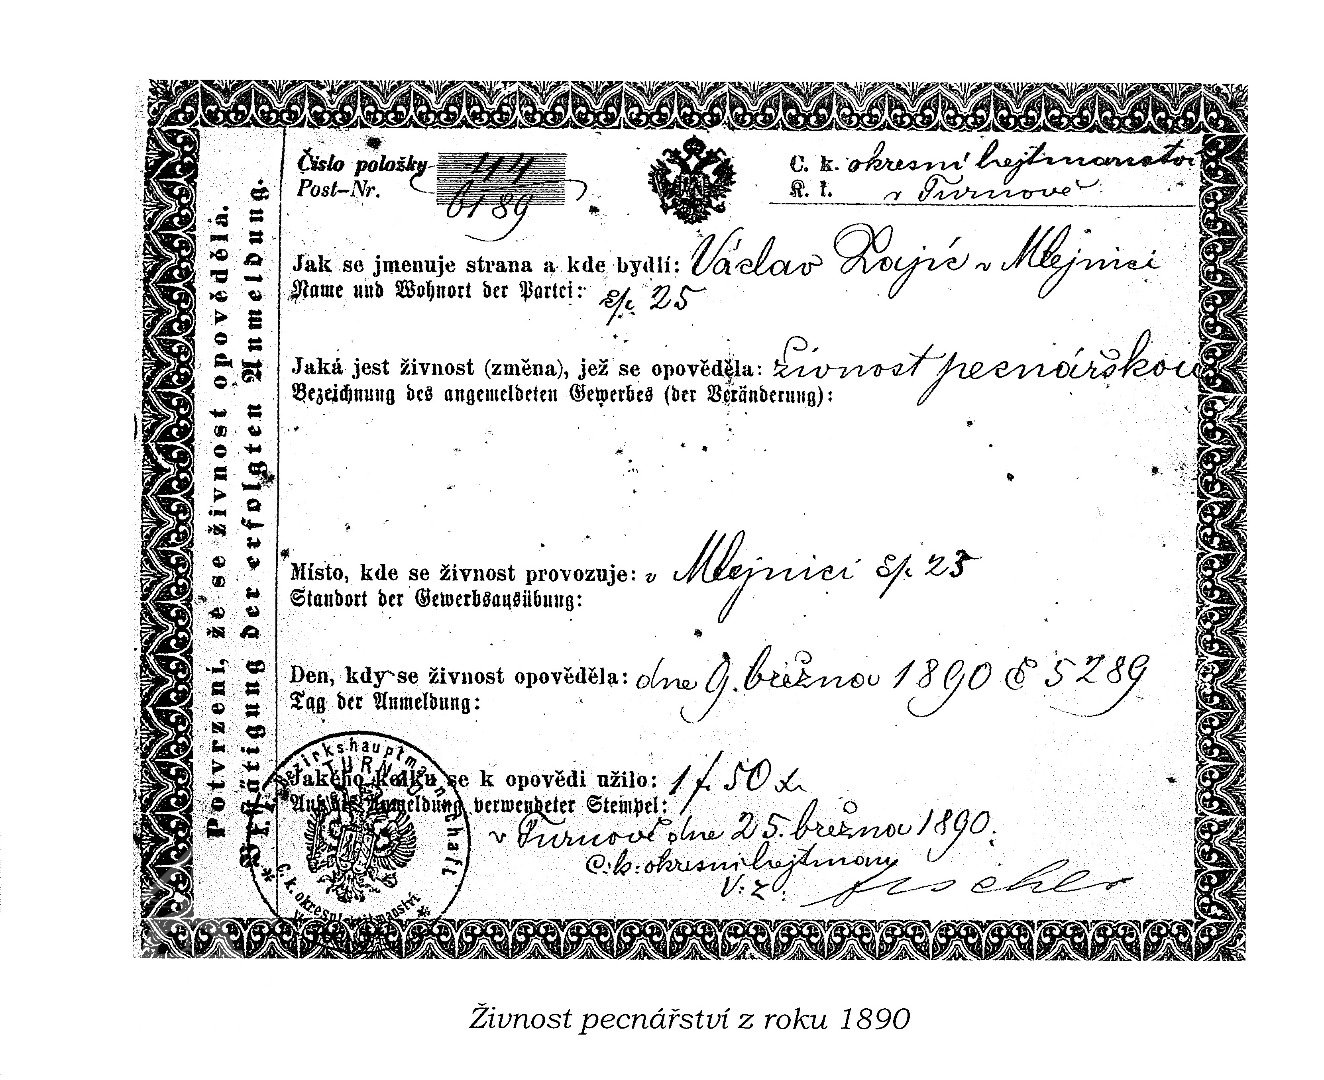 Potvrzení, že se živnost opověděla.
Bestätigung der erfolgten Anmeldung.
Číslo položky 44
Post-Nr. 6189
C. k. okresní hejtmanství
K. k. v Turnově
Jak se jmenuje strana a kde bydlí: Václav Zajíc v Mlejnici
Name und Wohnort der Partei: čp. 25
Jaká jest živnost (změna), jež se opověděla: živnost pecnářskou
Bezeichnung des angemeldeten Gewerbes (der Veränderung):
Místo, kde se živnost provozuje: v Mlejnici čp. 25
Standort der Gewerbsausübung:
Den, kdy se živnost opověděla: dne 9. března 1890 č 5289
Tag der Anmeldung:
Jakého kolku se k opovědi užilo: 1 f. 50 k.
Anmeldung verwendeter Stempel:
v Turnově dne 25. března 1890.
C. k. okresní hejtman
V. z.
k. k. Bezirkshauptmannschaft
TURNAU
C. k. okresní hejtmanství
Živnost pecnářství z roku 1890